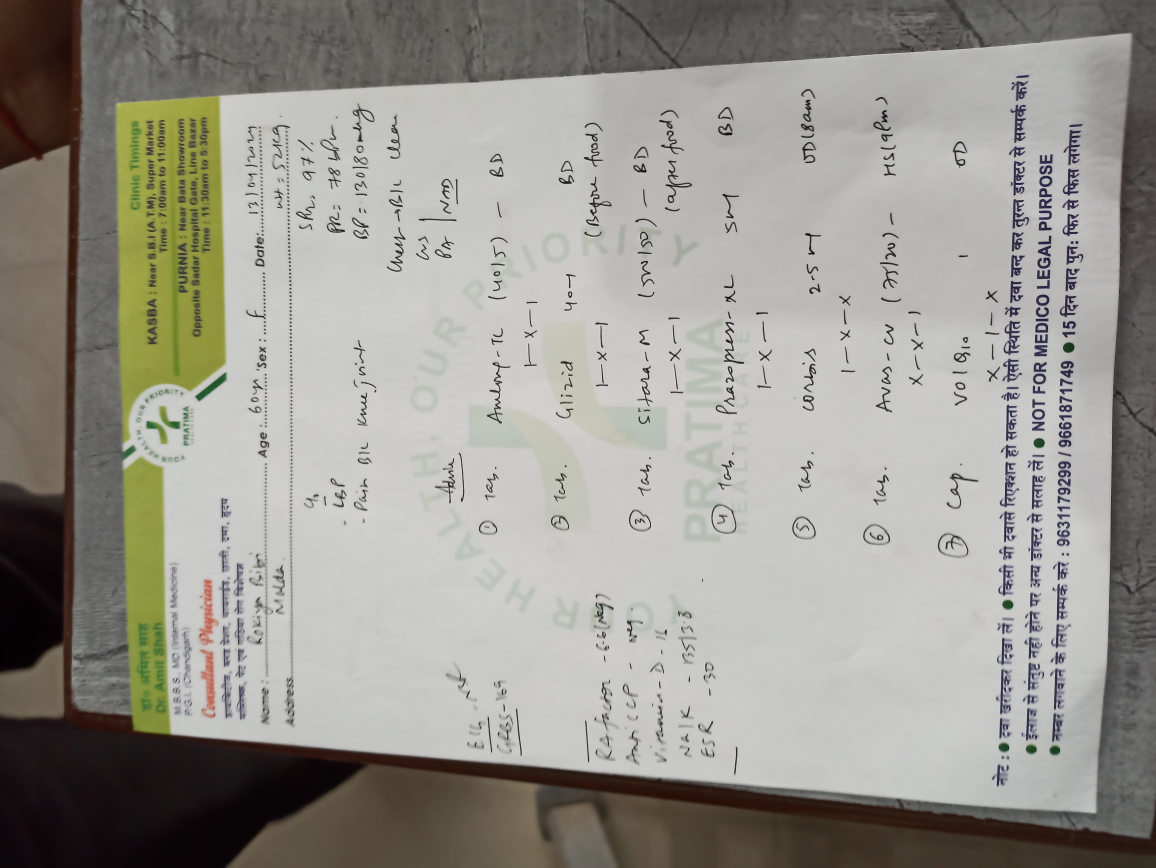 डॉ० अमित साह
Dr. Amit Shah
M.B.B.S., MD (Internal Medicine)
P.G.I. (Chandigarh)
Consultand Physician
YOUR HEALTH, OUR PRIORITY
PRATIMA
HEALTHCARE
Clinic Timings
KASBA : Near S.B.I (A.T.M), Super Market
Time : 7:00am to 11:00am
PURNIA : Near Bata Showroom
Opposite Sadar Hospital Gate, Line Bazar
Time : 11:30am to 5:30pm
Name : Rokiya Bibi Age : 60yr Sex : F Date: 13/04/2024
Address Malda Wt = 52kg.
SPO2 97%
PR = 78 bpm.
BP = 130/80mmHg
Chest → B/L clear
CVS
PA NAD
C/o
- LBP
- Pain B/L knee joint
ECG - NS
GRBS - 169
RA factor - 6.6 (Neg)
Anti CCP - Neg
Vitamin - D - 16
Na/K - 135/3.8
ESR - 30
Advice
① Tab. Amlong-TL (40/5) – BD
1 – x – 1
② Tab. Glizid 40 BD
1 – x – 1 (Before food)
③ Tab. Sitara-M (50/50) – BD
1 – x – 1 (after food)
④ Tab. Prazopress-XL 5mg BD
1 – x – 1
⑤ Tab. Corbis 2.5 OD (8am)
1 – x – x
⑥ Tab. Avas-CV (75/20) – HS (9pm)
x – x – 1
⑦ Cap. OD
x – 1 – x
नोट : ● दवा खरीदकर दिखा लें। ● किसी भी दवासे रिएक्शन हो सकता है। ऐसी स्थिति में दवा बन्द कर तुरन्त डॉक्टर से सम्पर्क करें।
● ईलाज से संतुष्ट नही होने पर अन्य डॉक्टर से सलाह लें। ● NOT FOR MEDICO LEGAL PURPOSE
● नम्बर लगवाने के लिए सम्पर्क करे : 9631179299 / 9661871749 ● 15 दिन बाद पुनः फिर से फिस लगेगा।